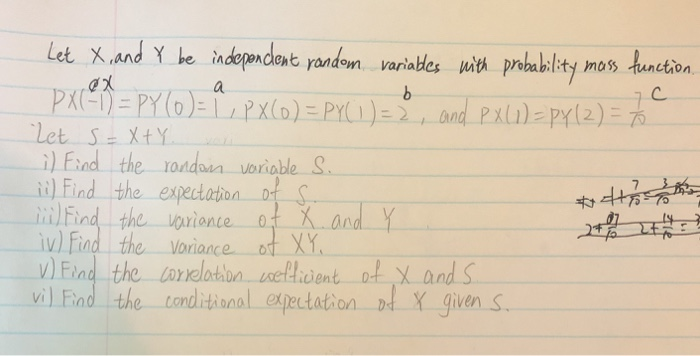 Let X, and Y be independent random variables with probability mass function
PX(-1) = PY(0) = 1, PX(0) = PY(1) = 2, and PX(1) = PY(2) = 7/10
a b c
Let S = X+Y
i) Find the random variable S.
ii) Find the expectation of S
iii) Find the variance of X and Y
iv) Find the variance of XY.
v) Find the correlation coefficient of X and S
vi) Find the conditional expectation of X given S.